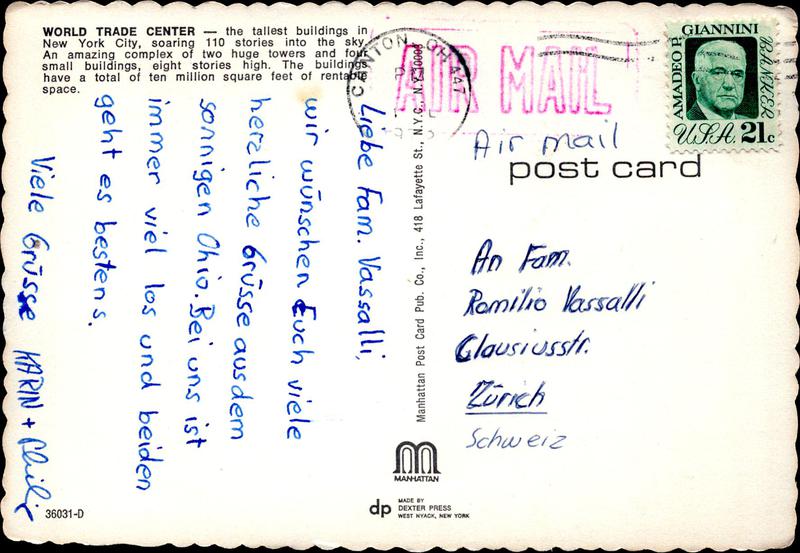 WORLD TRADE CENTER — the tallest buildings in
New York City, soaring 110 stories into the sky.
An amazing complex of two huge towers and four
small buildings, eight stories high. The buildings
have a total of ten million square feet of rentable
space.
CANTON, OH 447
AIR MAIL
AMADEO P. GIANNINI
BANKER
U.S.A. 21c
Air mail
post card
Liebe Fam. Vassalli,
wir wünschen Euch viele
herzliche Grüsse aus dem
sonnigen Ohio. Bei uns ist
immer viel los und beiden
geht es bestens.
Viele Grüsse KARIN +
Manhattan Post Card Pub. Co., Inc., 418 Lafayette St., N.Y.C., N.Y. 10003
An Fam.
Romilio Vassalli
Clausiusstr.
Zürich
Schweiz
MANHATTAN
dp MADE BY
DEXTER PRESS
WEST NYACK, NEW YORK
36031-D